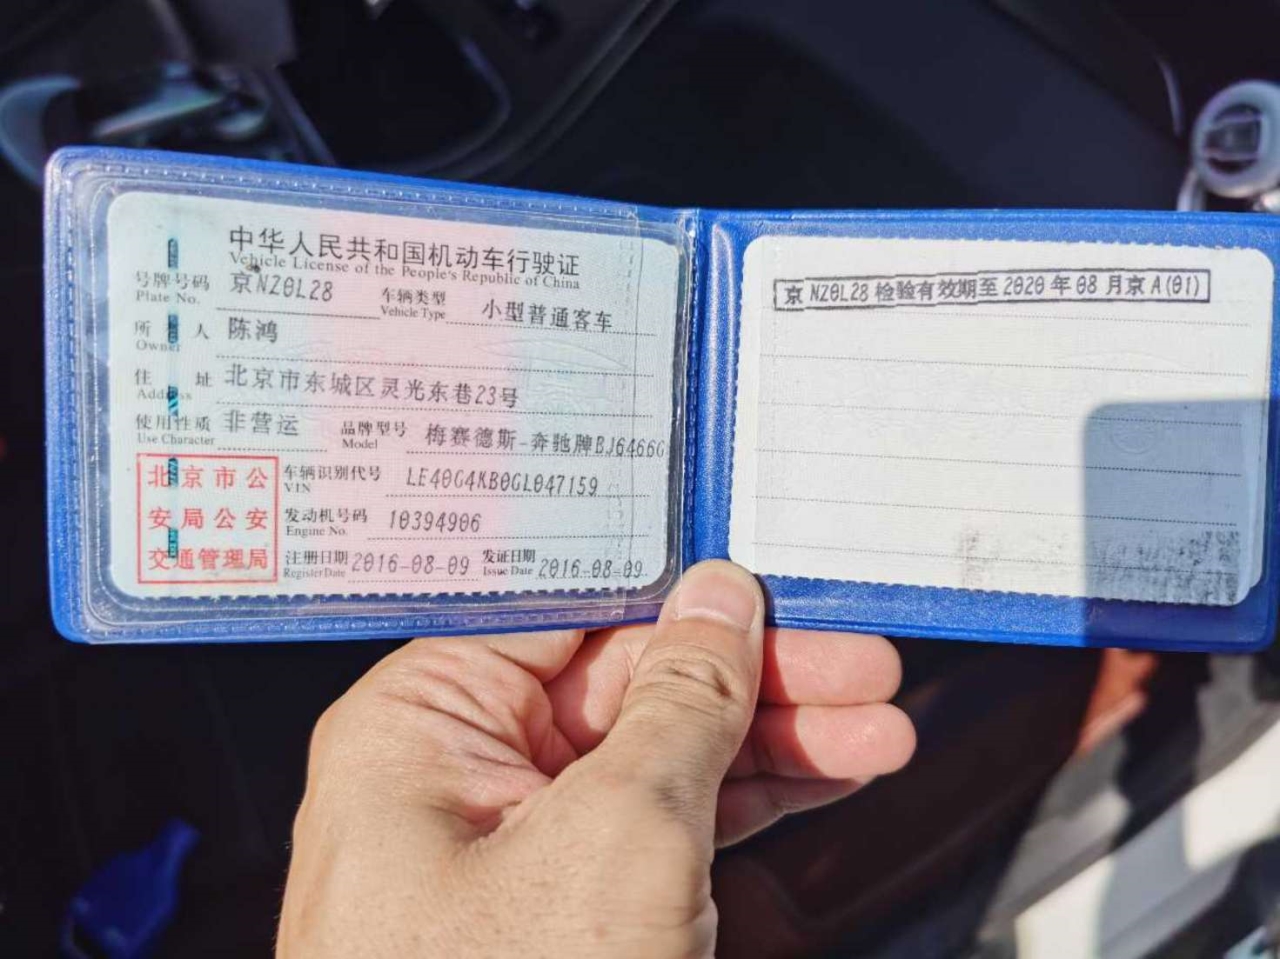 中华人民共和国机动车行驶证
Vehicle License of the People's Republic of China
号牌号码 京NZ0L28 车辆类型 小型普通客车
Plate No. Vehicle Type
所有人 陈鸿
Owner
住址 北京市东城区灵光东巷23号
Address
使用性质 非营运 品牌型号 梅赛德斯-奔驰牌BJ6466G
Use Character Model
北京市公安局公安交通管理局
车辆识别代号 LE40G4KB0GL047159
VIN
发动机号码 10394906
Engine No.
注册日期 2016-08-09 发证日期 2016-08-09
Register Date Issue Date
京NZ0L28检验有效期至2020年08月京A(01)